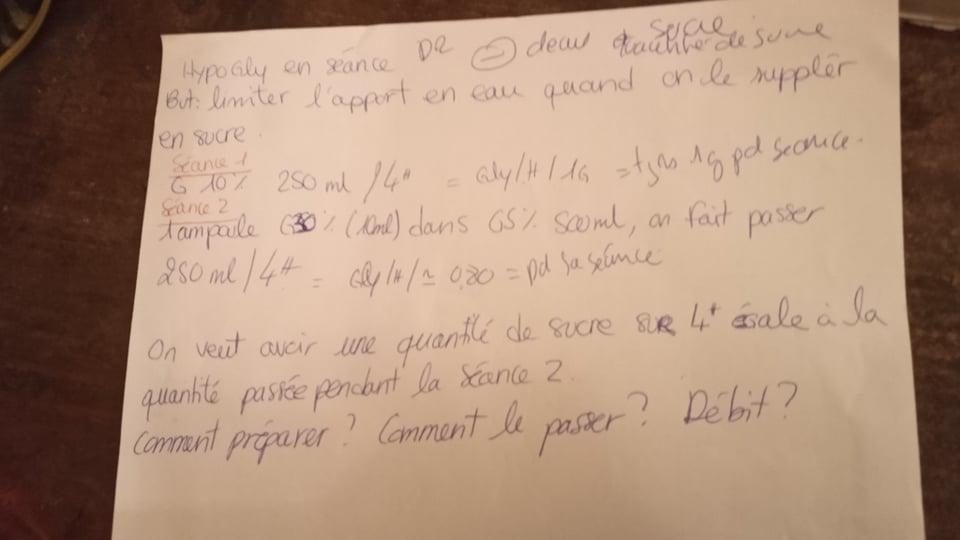 HypoGly en séance D2 deux sucre
quantité de sucre
But: limiter l'apport en eau quand on le supplér
en sucre.
Séance 1
G 10% 250 ml /4H = Gly/H/ 1G = tjrs 1g pd seance.
Séance 2
1 ampoule G30% (10ml) dans G5% 500ml, on fait passer
250 ml /4H = Gly/H/ ≃ 0,80 = pd sa séance
On veut avoir une quantité de sucre sur 4H égale à la
quantité passée pendant la séance 2.
Comment préparer? Comment le passer? Débit?